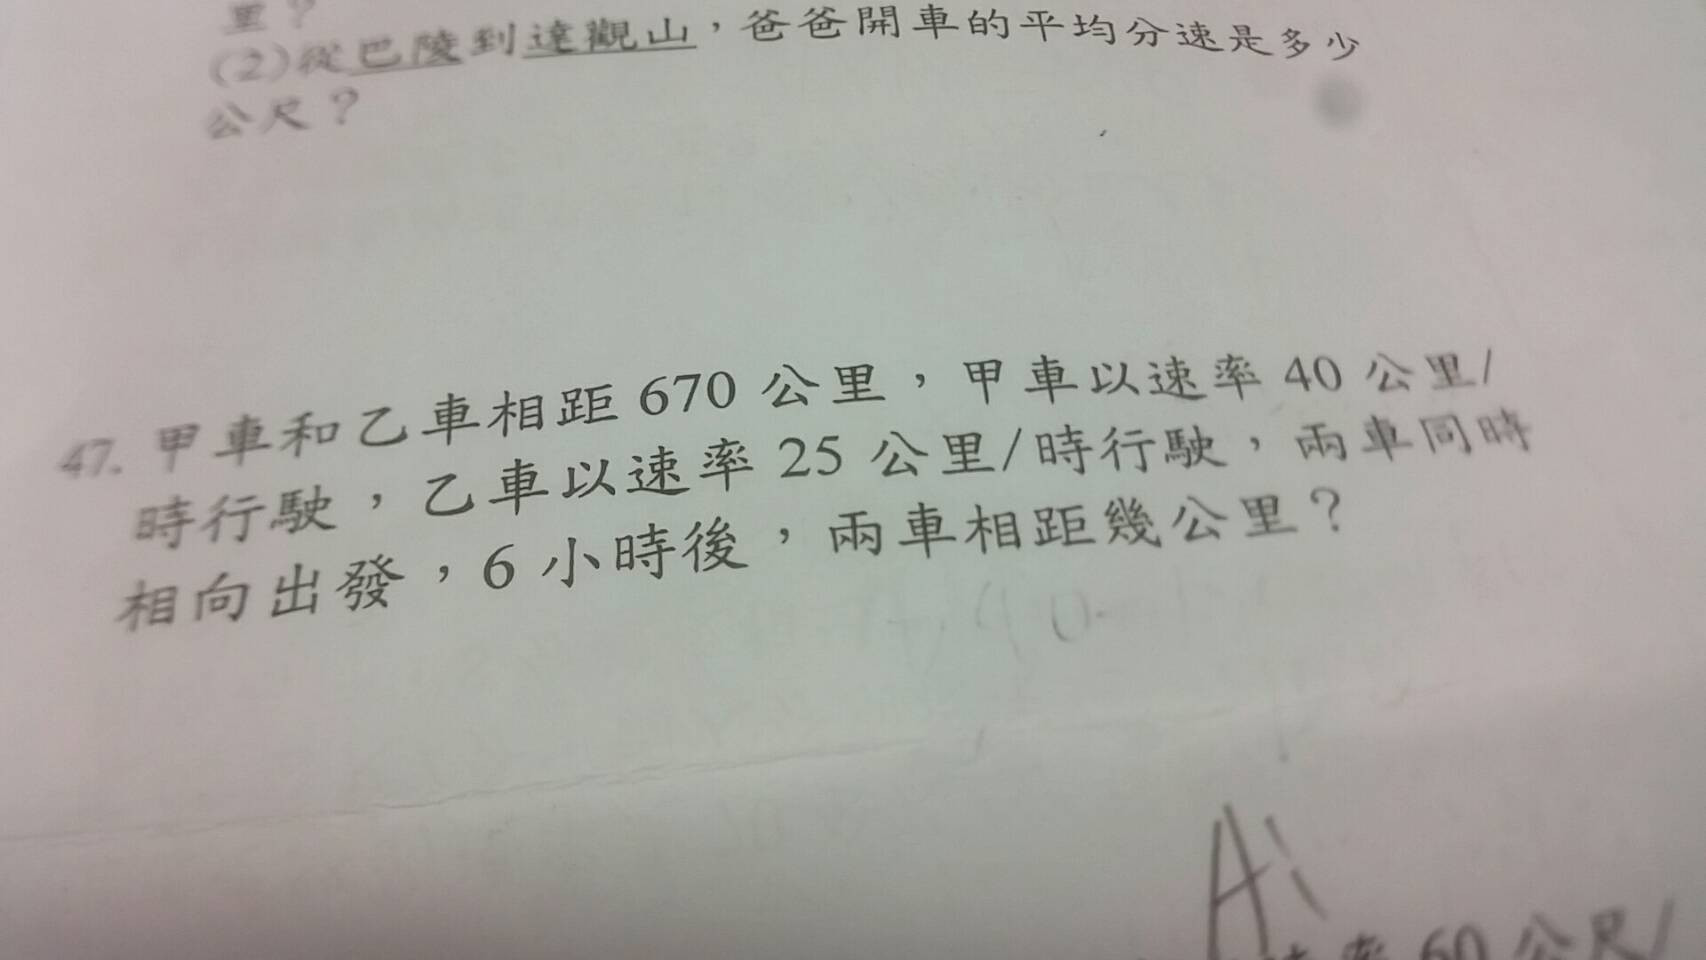 里？
(2)從巴陵到達觀山，爸爸開車的平均分速是多少
公尺？
47. 甲車和乙車相距 670 公里，甲車以速率 40 公里/
時行駛，乙車以速率 25 公里/時行駛，兩車同時
相向出發，6 小時後，兩車相距幾公里？
A:
率 60 公尺/